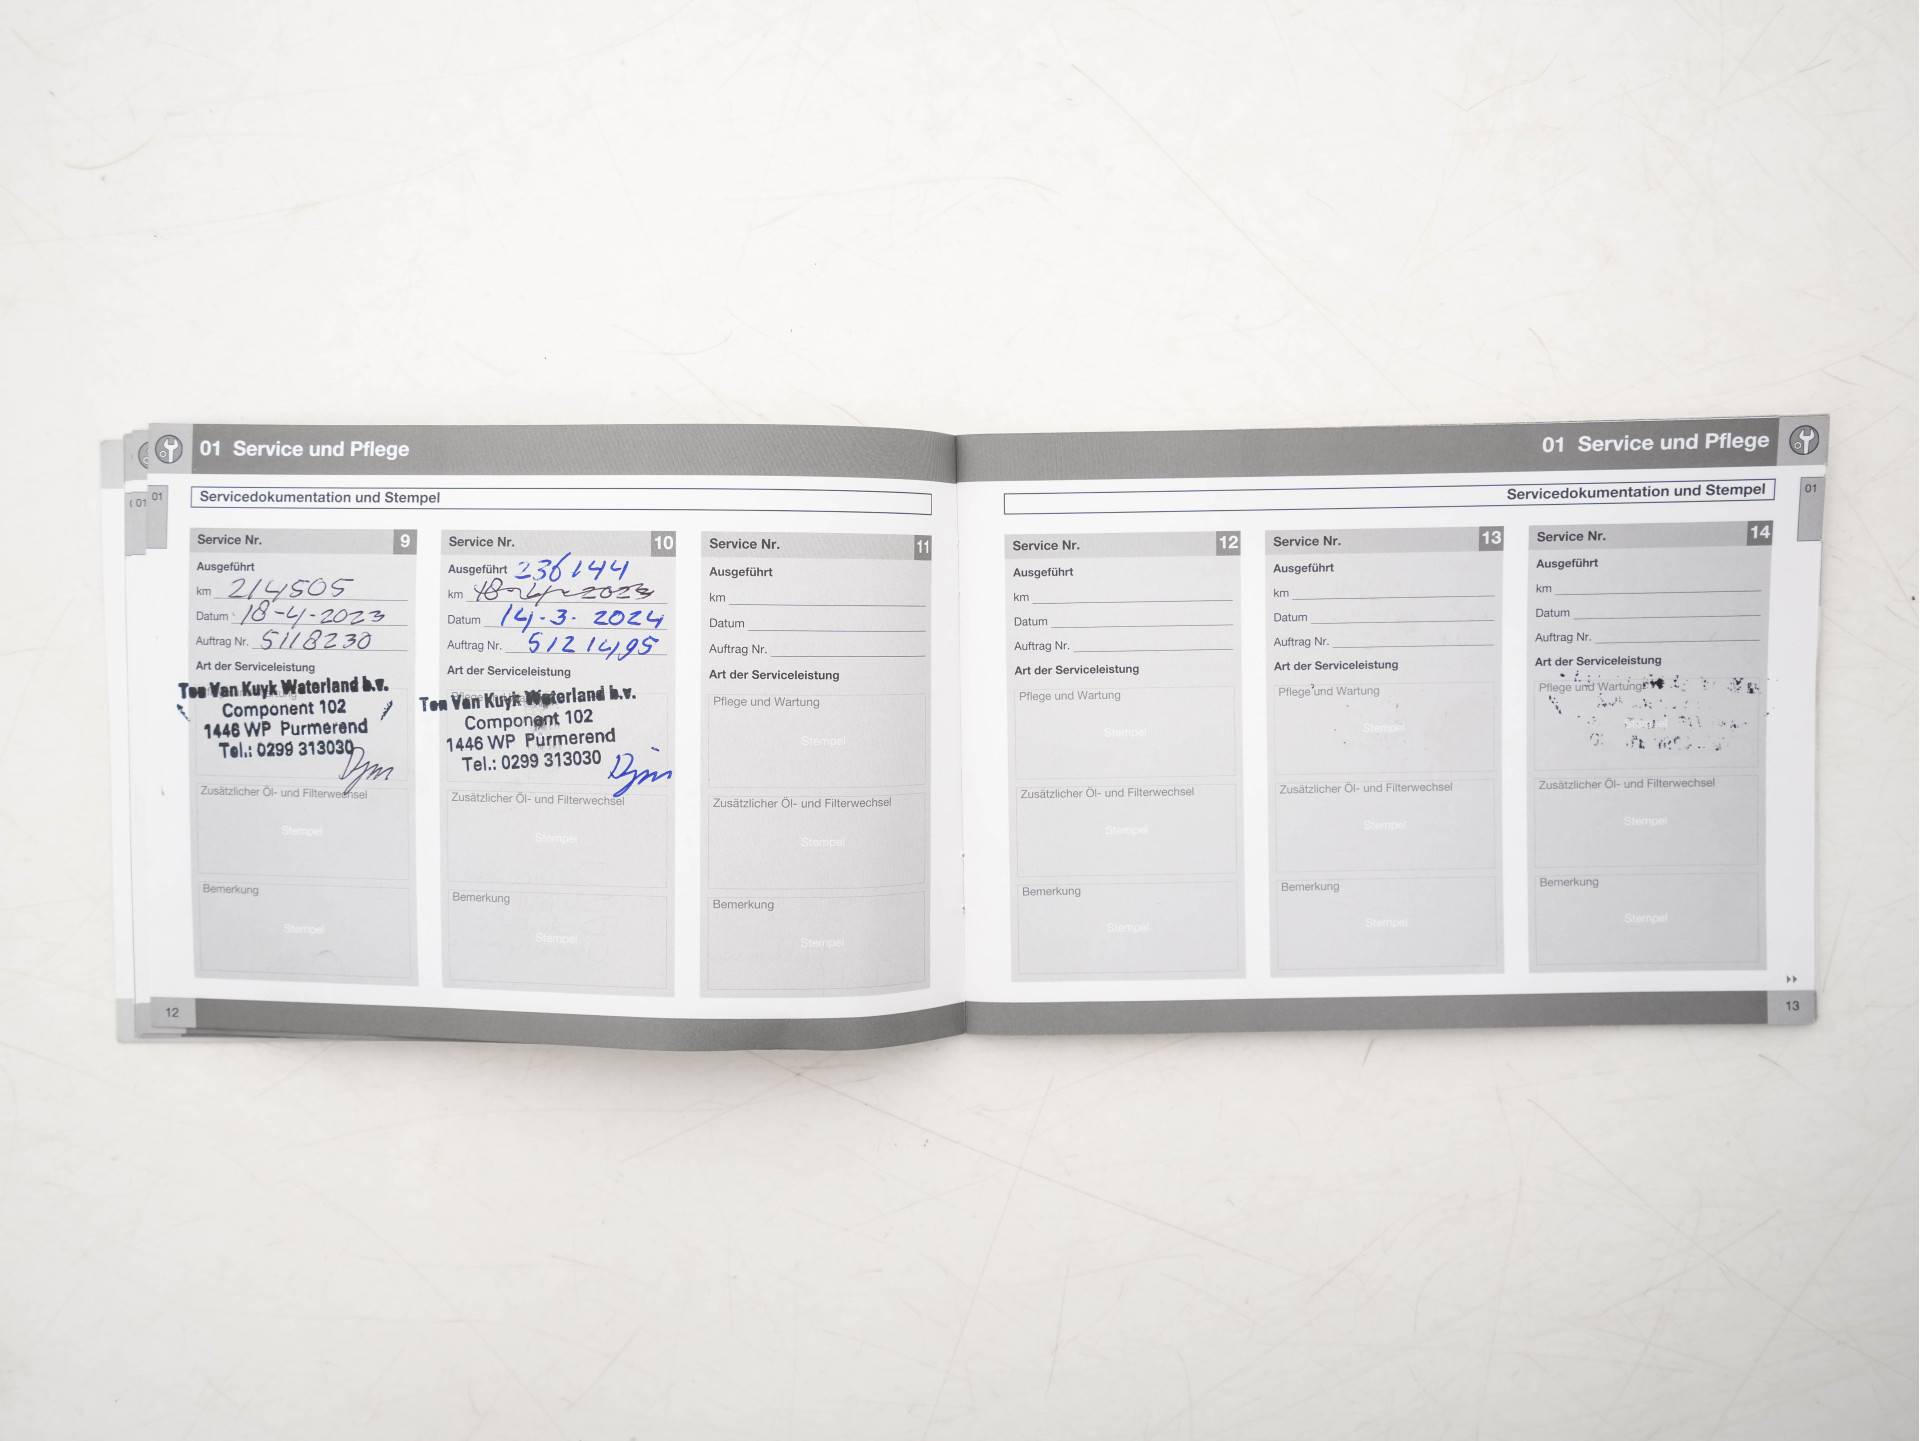 01 Service und Pflege
01
01
Servicedokumentation und Stempel
Service Nr. 9
Ausgeführt
km 214505
Datum 18-4-2023
Auftrag Nr. 5118230
Art der Serviceleistung
Ton Van Kuyk Waterland b.v.
Component 102
1446 WP Purmerend
Tel.: 0299 313030
Zusätzlicher Öl- und Filterwechsel
Stempel
Bemerkung
Stempel
Service Nr. 10
Ausgeführt 236144
km 18-4-2023
Datum 14-3-2024
Auftrag Nr. 5121495
Art der Serviceleistung
Ton Van Kuyk Waterland b.v.
Component 102
1446 WP Purmerend
Tel.: 0299 313030
Zusätzlicher Öl- und Filterwechsel
Stempel
Bemerkung
Stempel
Service Nr. 11
Ausgeführt
km
Datum
Auftrag Nr.
Art der Serviceleistung
Pflege und Wartung
Stempel
Zusätzlicher Öl- und Filterwechsel
Stempel
Bemerkung
Stempel
12
01 Service und Pflege
01
Servicedokumentation und Stempel
Service Nr. 12
Ausgeführt
km
Datum
Auftrag Nr.
Art der Serviceleistung
Pflege und Wartung
Stempel
Zusätzlicher Öl- und Filterwechsel
Stempel
Bemerkung
Stempel
Service Nr. 13
Ausgeführt
km
Datum
Auftrag Nr.
Art der Serviceleistung
Pflege und Wartung
Stempel
Zusätzlicher Öl- und Filterwechsel
Stempel
Bemerkung
Stempel
Service Nr. 14
Ausgeführt
km
Datum
Auftrag Nr.
Art der Serviceleistung
Pflege und Wartung
Stempel
Zusätzlicher Öl- und Filterwechsel
Stempel
Bemerkung
Stempel
13